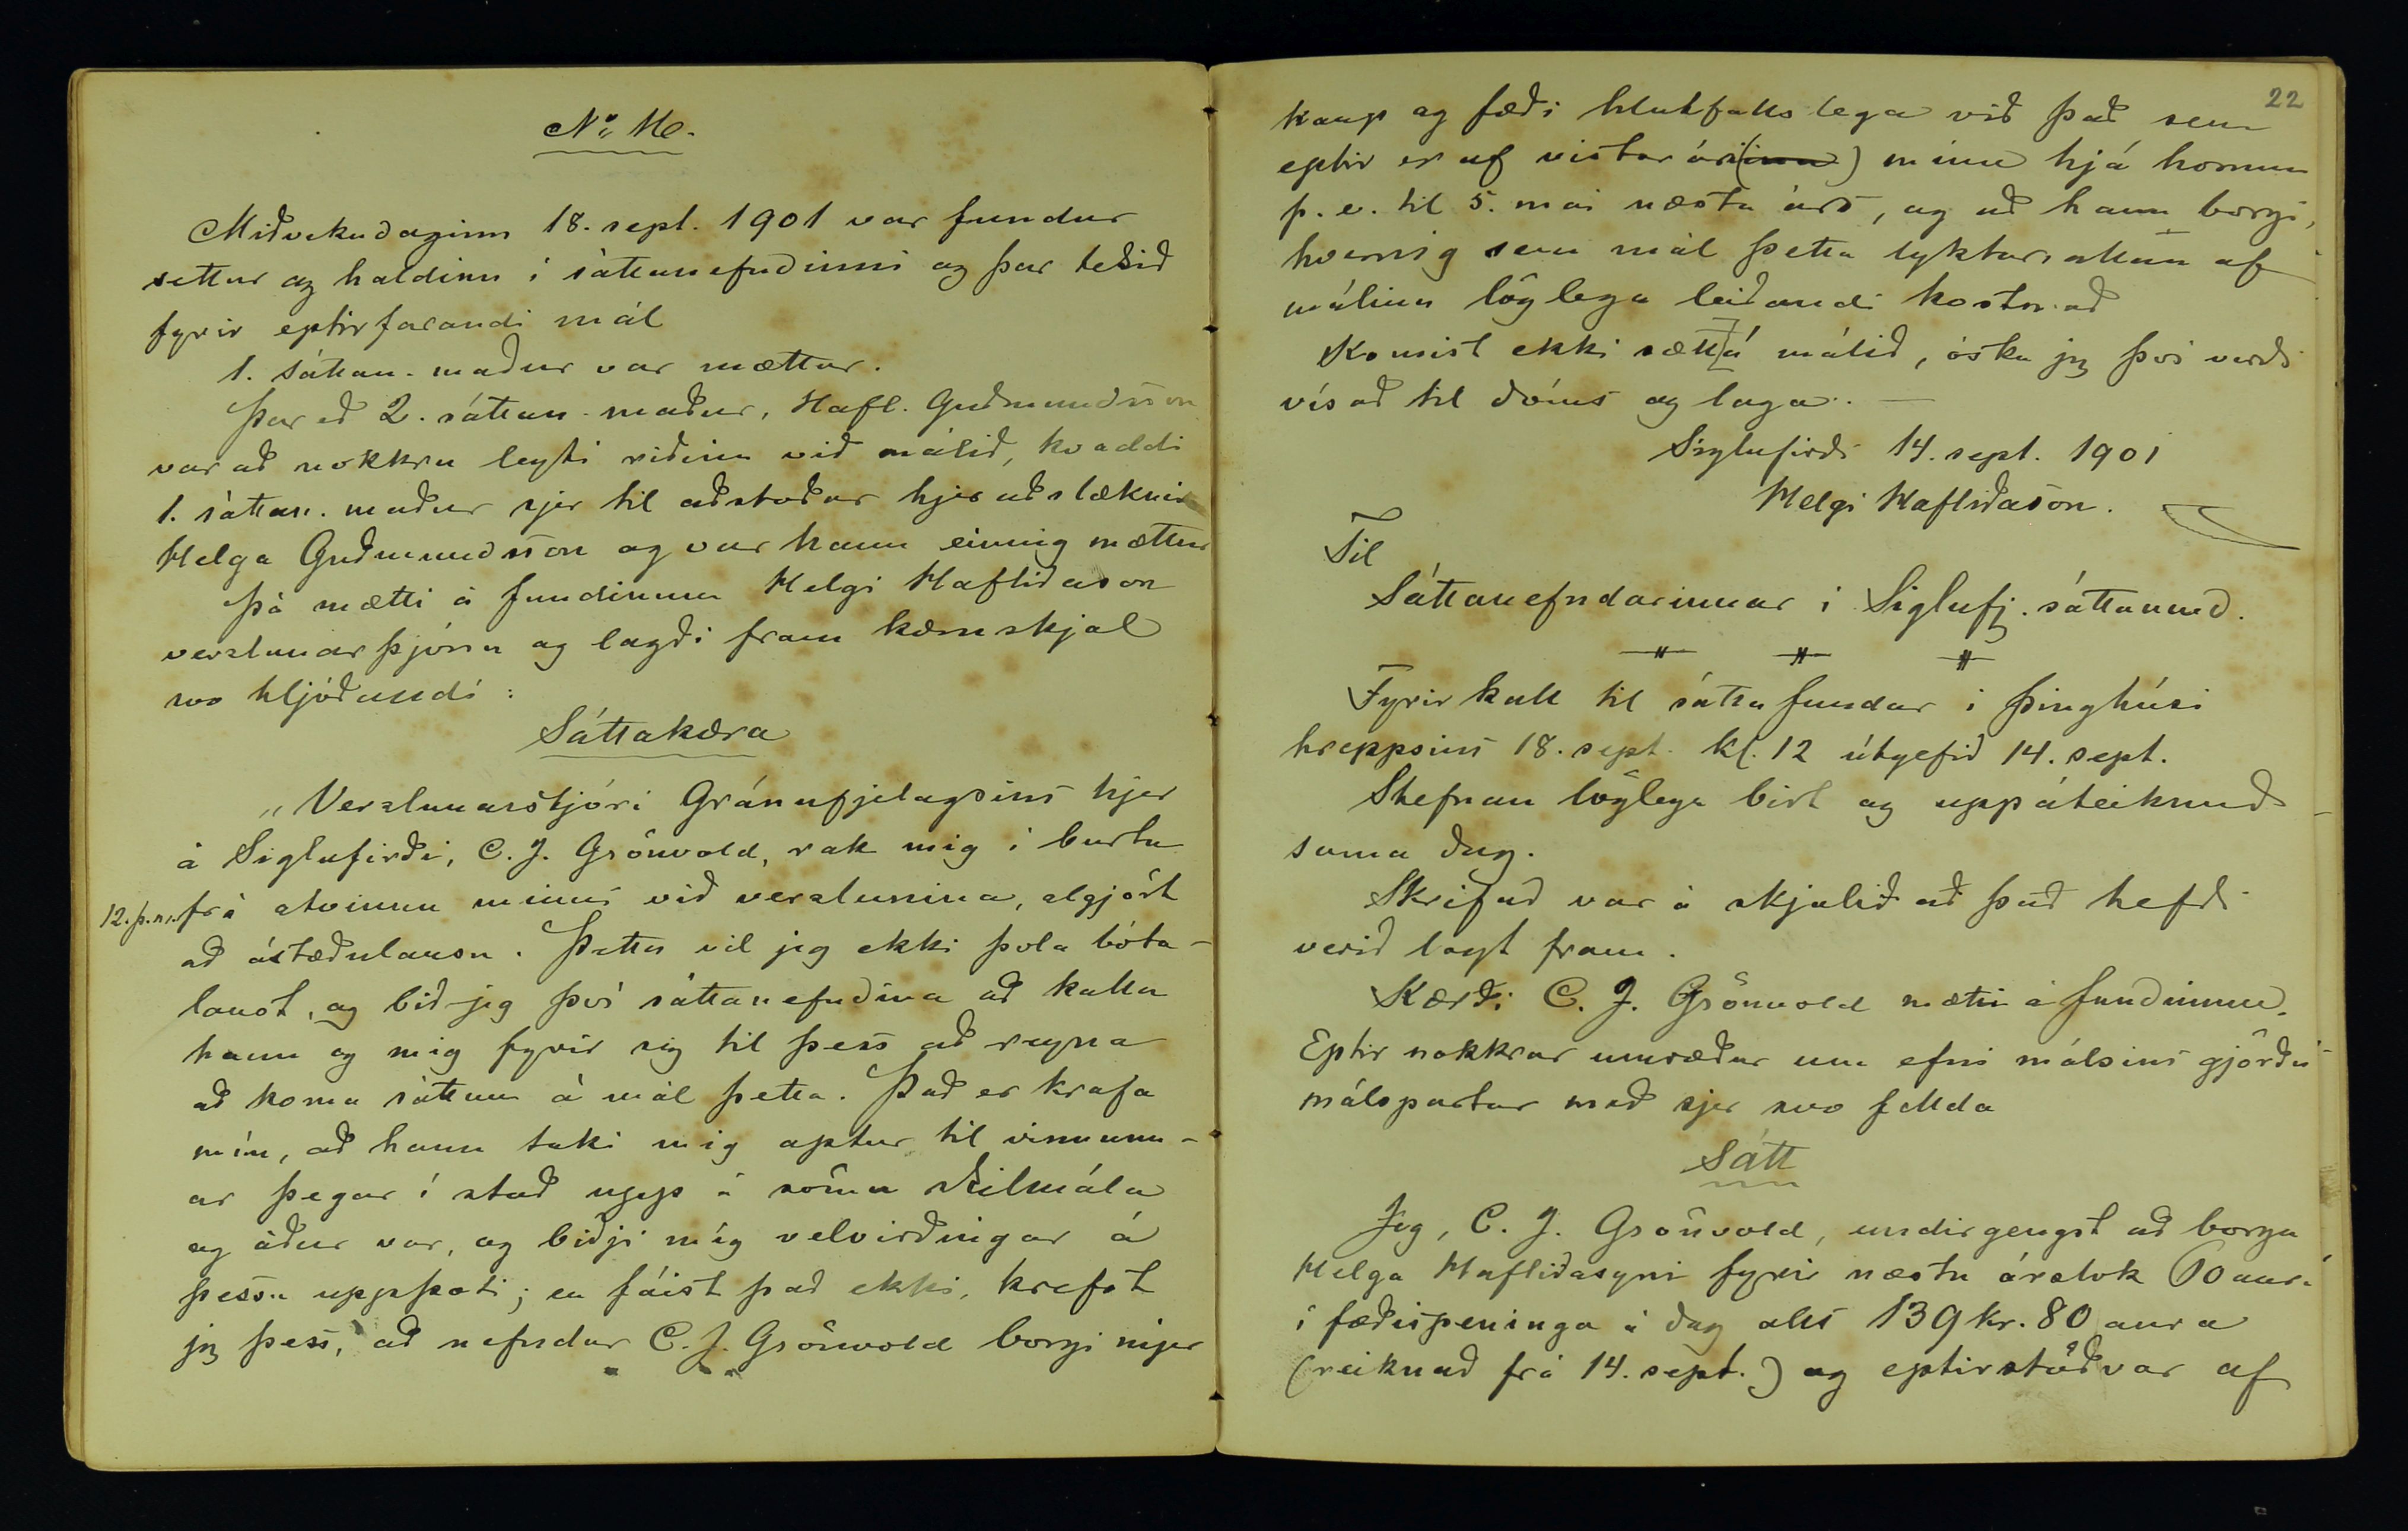 Miðvekudaginn 18. sept. 1901 var fundur
settur og haldinn í sáttanefndinni og þar tekið
fyrir eptirfarandi mál
1. sáttan. maður var mættur.
Þar eð 2. sáttan. maður, Hafl. Guðmundsson
var að nokkru leyti riðinn við málið, kvaddi
1. sáttan. maður sjer til aðstoðar hjeraðslæknir
Helga Guðmundsson og var hann einnig mættur
Þá mætti á fundinum Helgi Hafliðason
verzlunarþjónn og lagði fram kæruskjal
svo hljóðandi:
Sáttakæra
„Verzlunarstjóri Gránufjelagsins hjer
á Siglufirði, C. J. Grönvold, rak mig í burtu
12. þ. m. frá atvinnu minni við verzlunina, algjört
að ástæðulausu. Þetta vil jeg ekki þola bóta-
laust, og bið jeg því sáttanefndina að kalla
hann og mig fyrir sig til þess að reyna
að koma sáttum á mál þetta. Það er krafa
mín, að hann taki mig aptur til vinnunn-
ar þegar í stað upp á sömu skilmála
og áður var, og biðji mig velvirðingar á
þessu uppþoti; en fáist það ekki, krefst
jeg þess, að nefndur C. J. Grönvold borgi mjer
22
kaup og fæði hlutfallslega við það sem
eptir er af vistarári(inu) mínu hjá honum
þ. e. til 5. mai næsta árs, og að hann borgi,
hvernig sem mál þetta lyktar, allan af
málinu löglega leiðandi kostnað
Komist ekki sætt á málið, óska jeg því verði
vísað til dóms og laga. —
Siglufirði 14. sept. 1901
Helgi Hafliðason.
Til
Sáttanefndarinnar í Siglufj. sáttaumd.
Fyrirkall til sáttafundar í þinghúsi
hreppsins 18. sept. kl. 12 útgefið 14. sept.
Stefnan löglega birt og uppáteiknuð
sama dag.
Skrifað var á skjalið að það hefði
verið lagt fram.
Kærði C. J. Grönvold mætti á fundinum.
Eptir nokkrar umræður um efni málsins gjörðu
málspartar með sjer svo fellda
Sátt
Jeg, C. J. Grönvold, undirgengst að borga
Helga Hafliðasyni fyrir næstu árslok 60 aura
í fæðispeninga á dag alls 139 kr. 80 aura
(reiknað frá 14. sept.) og eptirstöðvar af